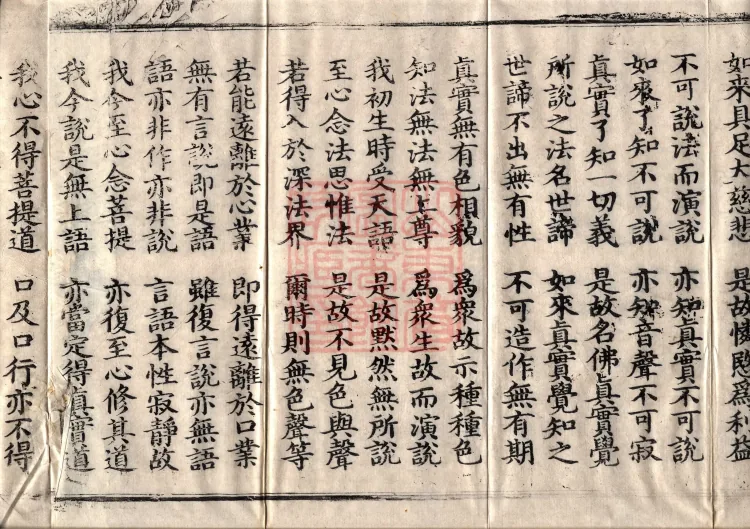 如來具足大慈悲 是故愍慰爲利益
不可說法而演說 亦知真實不可說
如來了知不可說 亦知音聲不可寂
真實了知一切義 是故名佛真實覺
所說之法名世諦 如來真實覺知之
世諦不出無有性 不可造作無有期
真實無有色相貌 爲衆故示種種色
知法無法無上尊 爲衆生故而演說
我初生時受天語 是故默然無所說
至心念法思惟法 是故不見色與聲
若得入於深法界 爾時則無色聲等
若能遠離於心業 即得遠離於口業
無有言說即是語 雖復言說亦無語
語亦非作亦非說 言語本性寂靜故
我今至心念菩提 亦復至心修其道
我今說是無上語 亦當定得真實道
我心不得菩提道 口及口行亦不得